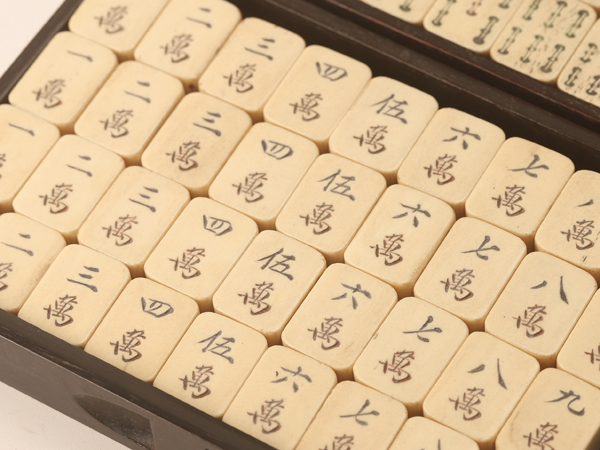 二 三 四 伍 六 七
萬 萬 萬 萬 萬 萬 萬 萬
一 二 三 四 伍 六 七 八
萬 萬 萬 萬 萬 萬 萬 萬
一 二 三 四 伍 六 七 八 九
萬 萬 萬 萬 萬 萬 萬 萬 萬
二 三 四 伍 六 七
萬 萬 萬 萬 萬 萬